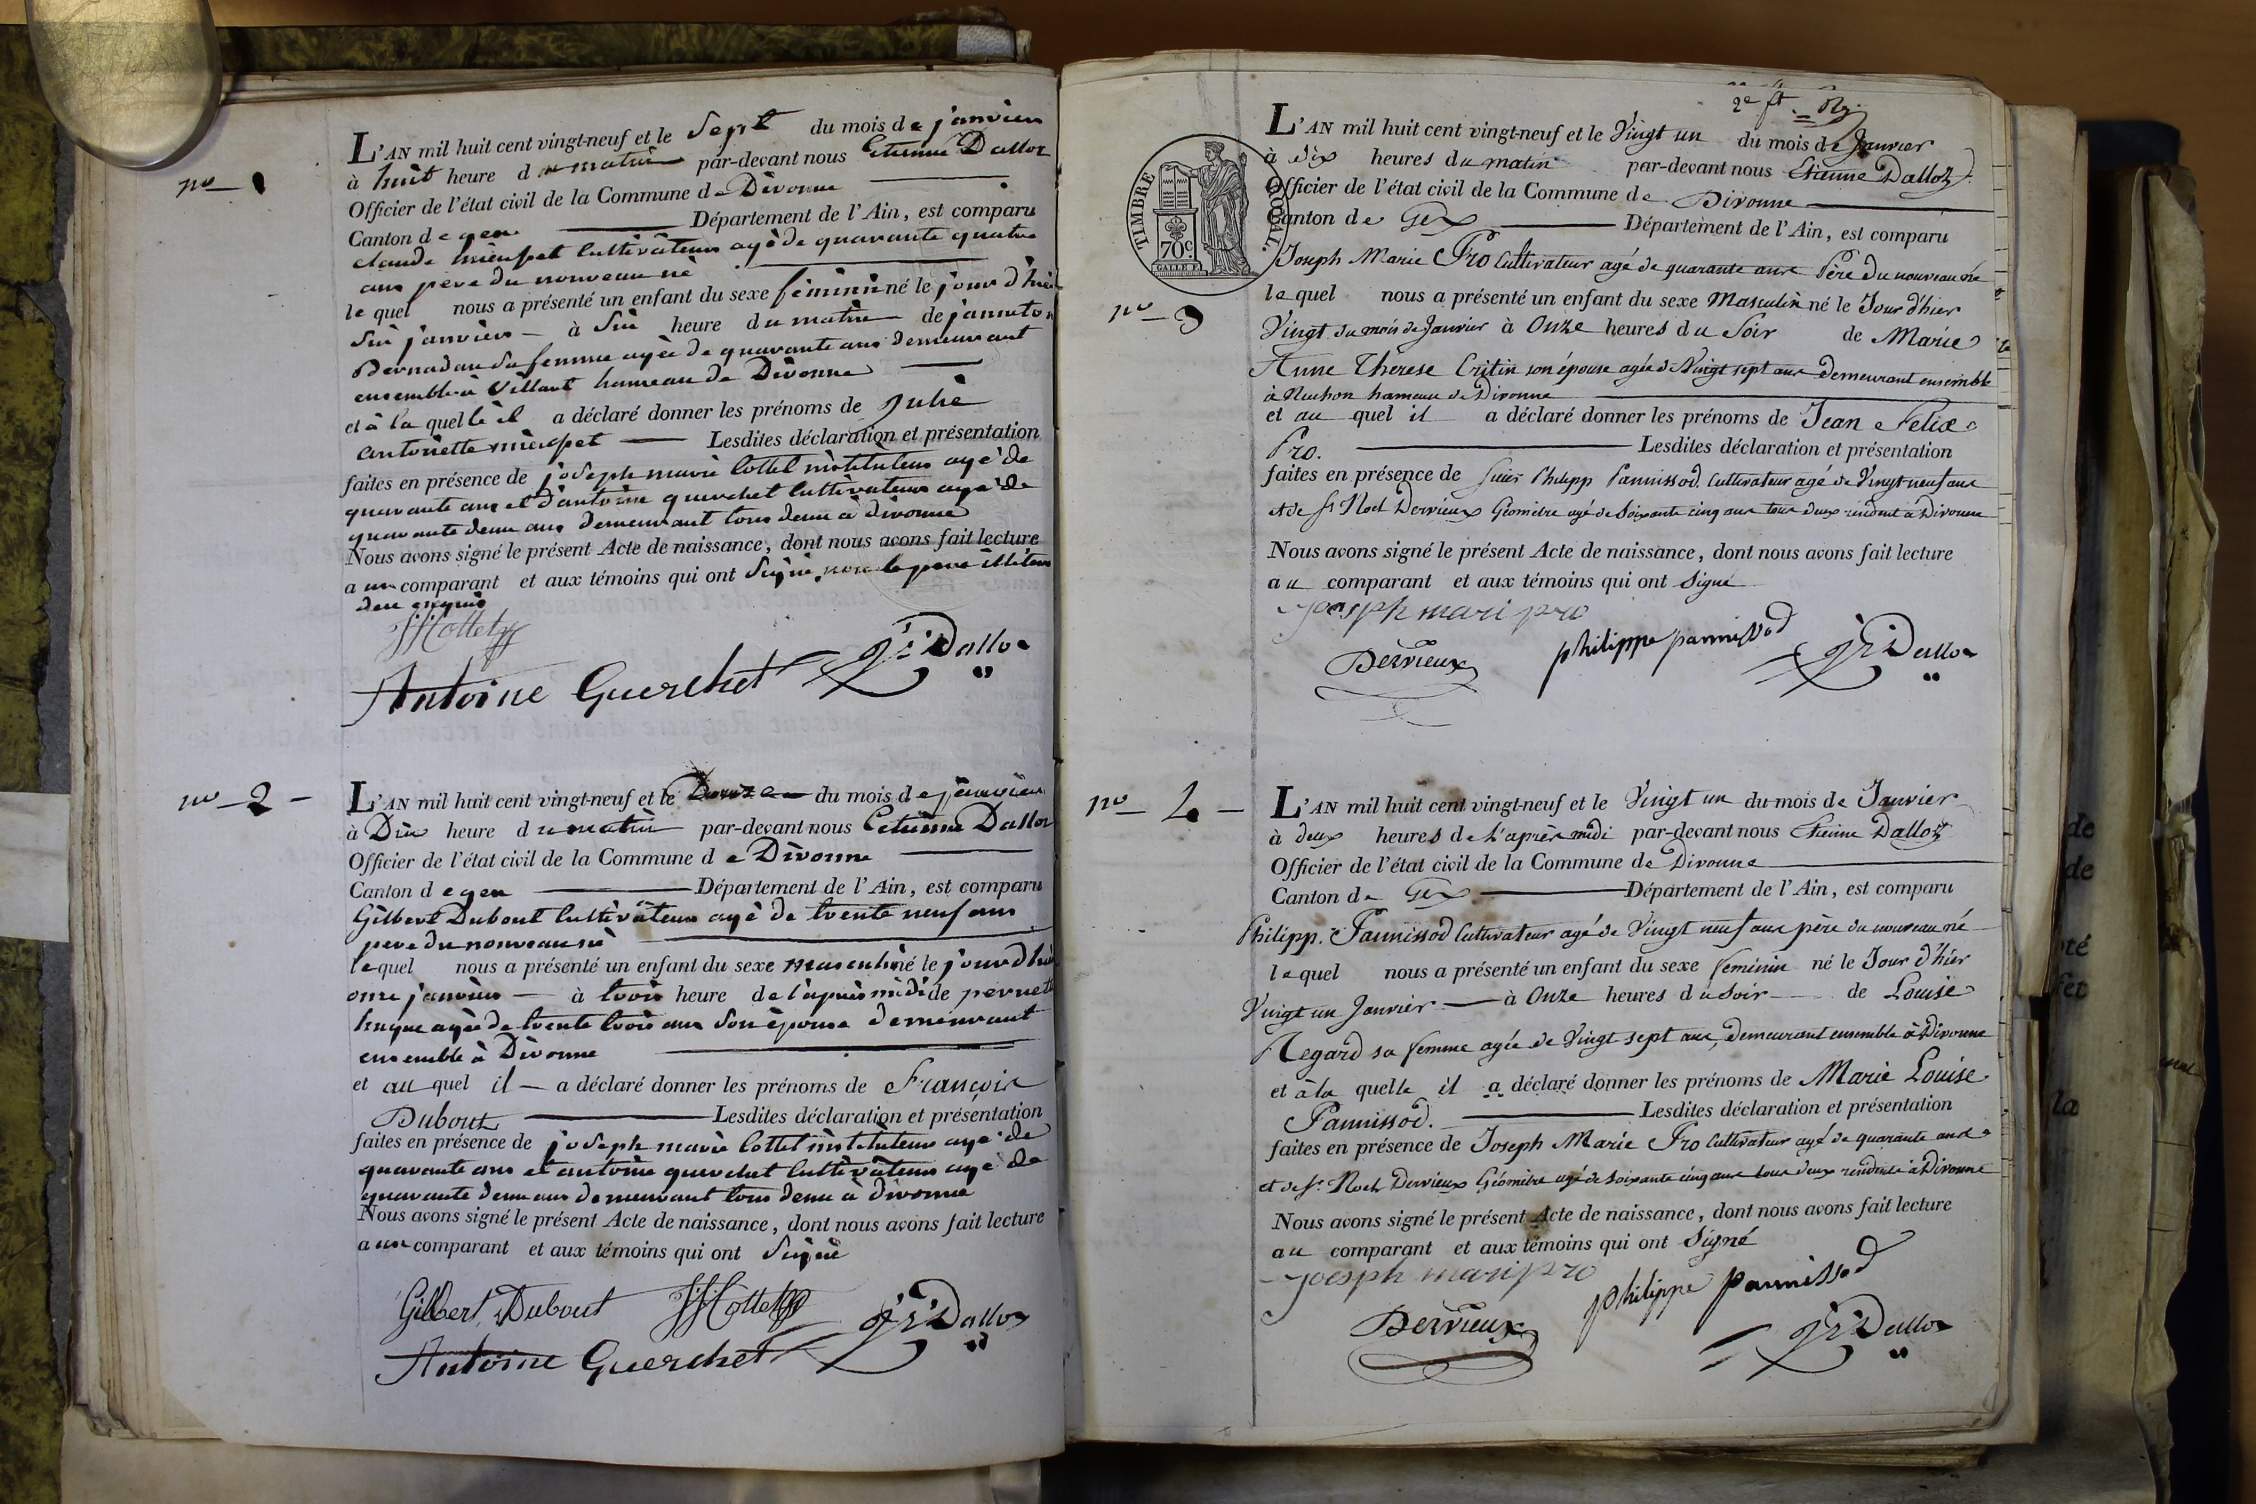 nº 1
L'AN mil huit cent vingt-neuf et le Sept du mois de janvier
à huit heure du matin par-devant nous Etienne Dalloz
Officier de l'état civil de la Commune de Divonne
Canton de gex Département de l'Ain, est comparu
claude cultivateur agé de quarante quatre
ans pere du nouveau né
le quel nous a présenté un enfant du sexe féminin né le jour d'hier
Six janvier à Six heure du matin de janneton
Bernadan sa femme agée de quarante ans demeurant
ensemble à Villard hameau de Divonne
et à la quelle il a déclaré donner les prénoms de Julie
antoinette Lesdites déclaration et présentation
faites en présence de joseph marie Cottet instituteur agé de
quarante ans et d'antoine querchet cultivateur agé de
quarante deux ans demeurant tous deux à divonne
Nous avons signé le présent Acte de naissance, dont nous avons fait lecture
au comparant et aux témoins qui ont Signé non le pere illiteré
de ce enquis
JMCottet
Antoine Guerchet Ee Dalloz
nº 2
L'AN mil huit cent vingt-neuf et le Douze du mois de janvier
à Dix heure du matin par-devant nous Etienne Dalloz
Officier de l'état civil de la Commune de Divonne
Canton de gex Département de l'Ain, est comparu
Gilbert Dubout Cultivateur agé de trente neuf ans
pere du nouveau né
le quel nous a présenté un enfant du sexe masculin né le jour d'hier
onze janvier à trois heure de l'après midi de pernette
huque agée de trente trois ans Son épouse demeurant
ensemble à Divonne
et au quel il a déclaré donner les prénoms de François
Dubout Lesdites déclaration et présentation
faites en présence de joseph marie Cottet instituteur agé de
quarante ans et antoine querchet Cultivateur agé de
quarante deux ans demeurant tous deux à divonne
Nous avons signé le présent Acte de naissance, dont nous avons fait lecture
au comparant et aux témoins qui ont Signé
Gilbert Dubout JMCottet
Antoine Guerchet Ee Dalloz
2e ft.
TIMBRE ROYAL.
70c.
nº 3
L'AN mil huit cent vingt-neuf et le Vingt un du mois de Janvier
à dix heures du matin par-devant nous Etienne Dalloz
Officier de l'état civil de la Commune de Divonne
Canton de Gex Département de l'Ain, est comparu
Joseph Marie Pro Cultivateur agé de quarante ans Père du nouveau né
le quel nous a présenté un enfant du sexe Masculin né le Jour d'hier
Vingt du mois de Janvier à Onze heures du Soir de Marie
Anne Thérèse Critin son épouse agée de Vingt sept ans demeurant ensemble
à hameau de Divonne
et au quel il a déclaré donner les prénoms de Jean Felix
Pro. Lesdites déclaration et présentation
faites en présence de Philipp Pannissod. Cultivateur agé de Vingt neuf ans
et de Sr Roch Dervieux Géomètre agé de Soixante cinq ans tous deux résident à Divonne
Nous avons signé le présent Acte de naissance, dont nous avons fait lecture
au comparant et aux témoins qui ont Signé
joesph mari pro
Dervieux philippe pannissod Ee Dalloz
nº 4
L'AN mil huit cent vingt-neuf et le Vingt un du mois de Janvier
à deux heures de L'après midi par-devant nous Etienne Dalloz
Officier de l'état civil de la Commune de Divonne
Canton de Gex Département de l'Ain, est comparu
Philipp. Pannissod Cultivateur agé de Vingt neuf ans père du nouveau né
le quel nous a présenté un enfant du sexe feminin né le Jour d'hier
Vingt un Janvier à Onze heures du Soir de Louise
Regard sa femme agée de Vingt sept ans, demeurant ensemble à Divonne
et à la quelle il a déclaré donner les prénoms de Marie Louise
Pannissod. Lesdites déclaration et présentation
faites en présence de Joseph Marie Pro Cultivateur agé de quarante ans
et de Sr. Roch Dervieux Géomètre agé de Soixante cinq ans tous deux résidents à Divonne
Nous avons signé le présent Acte de naissance, dont nous avons fait lecture
au comparant et aux témoins qui ont Signé
joesph mari pro
Dervieux philippe pannissod Ee Dalloz